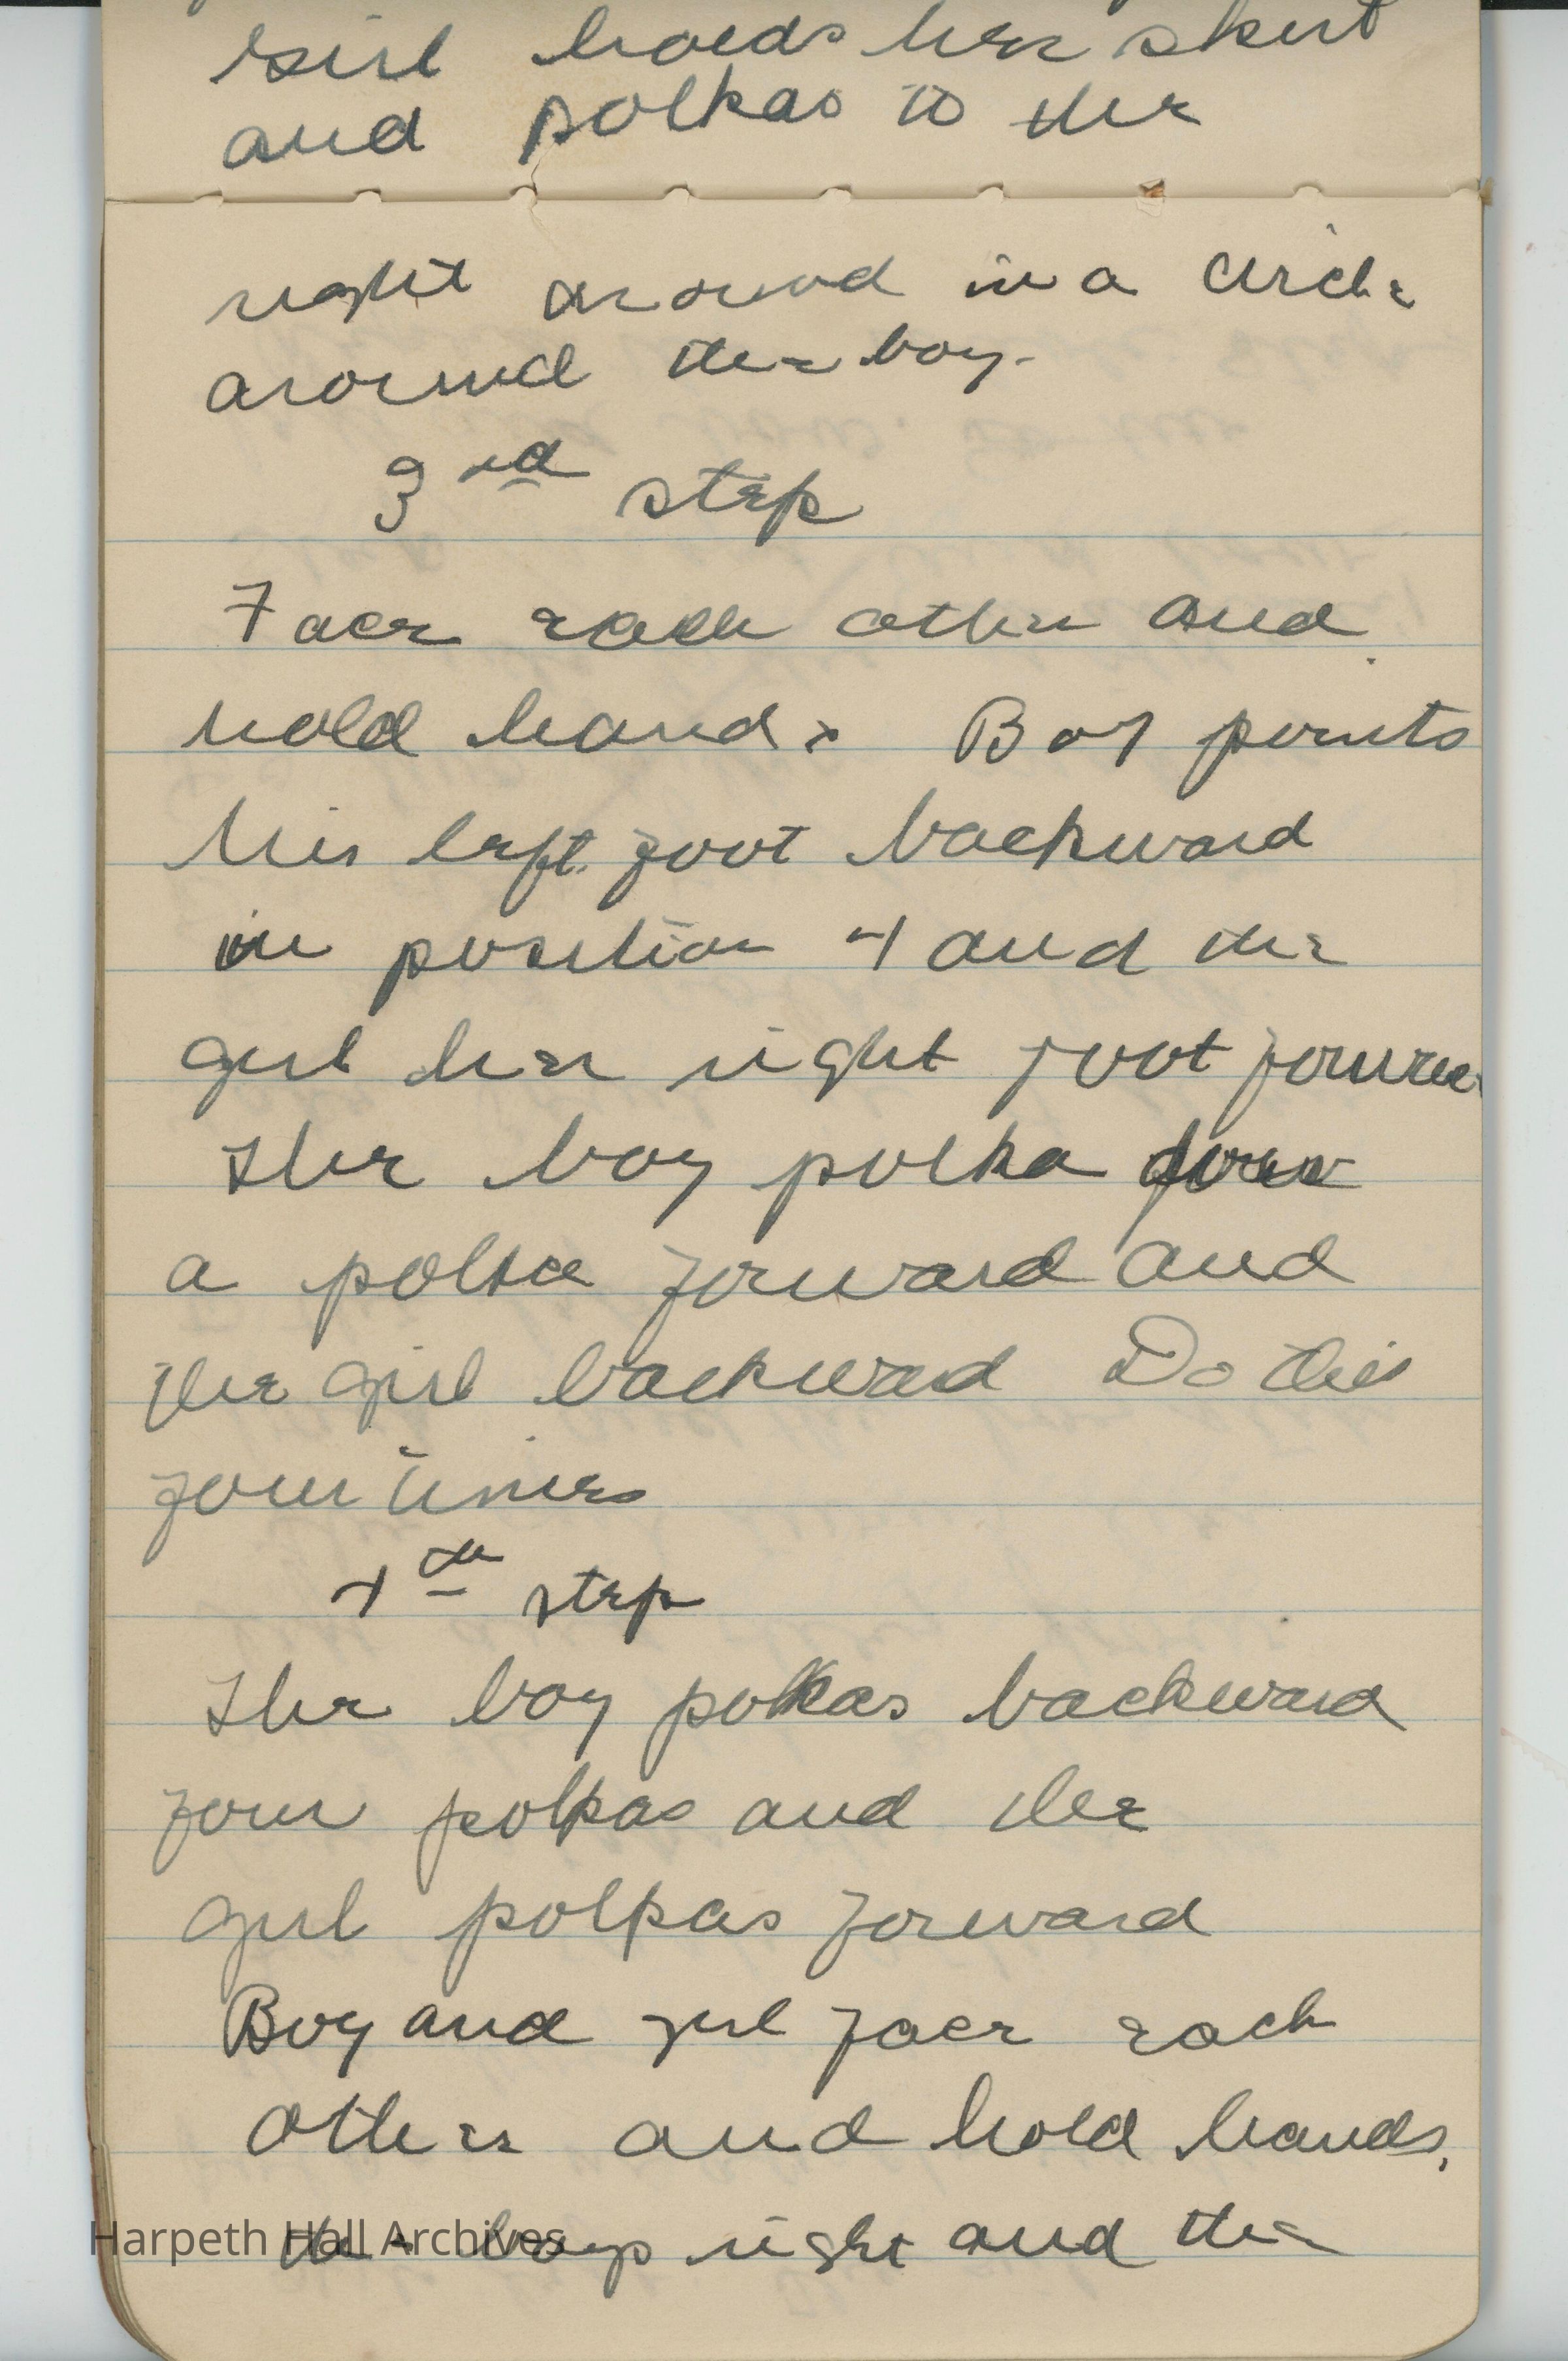 Girl holds her skirt
and polkas to the
right around in a circle
around the boy.
3rd step
Face each other and
hold hands Boy points
his left foot backward
in position 4 and the
girl her right foot forward
The boy polka does
a polka forward and
the girl backward Do this
four times
4th step
The boy polkas backward
four polkas and the
girl polkas forward
Boy and girl face each
other and hold hands,
the boys right and the
Harpeth Hall Archives